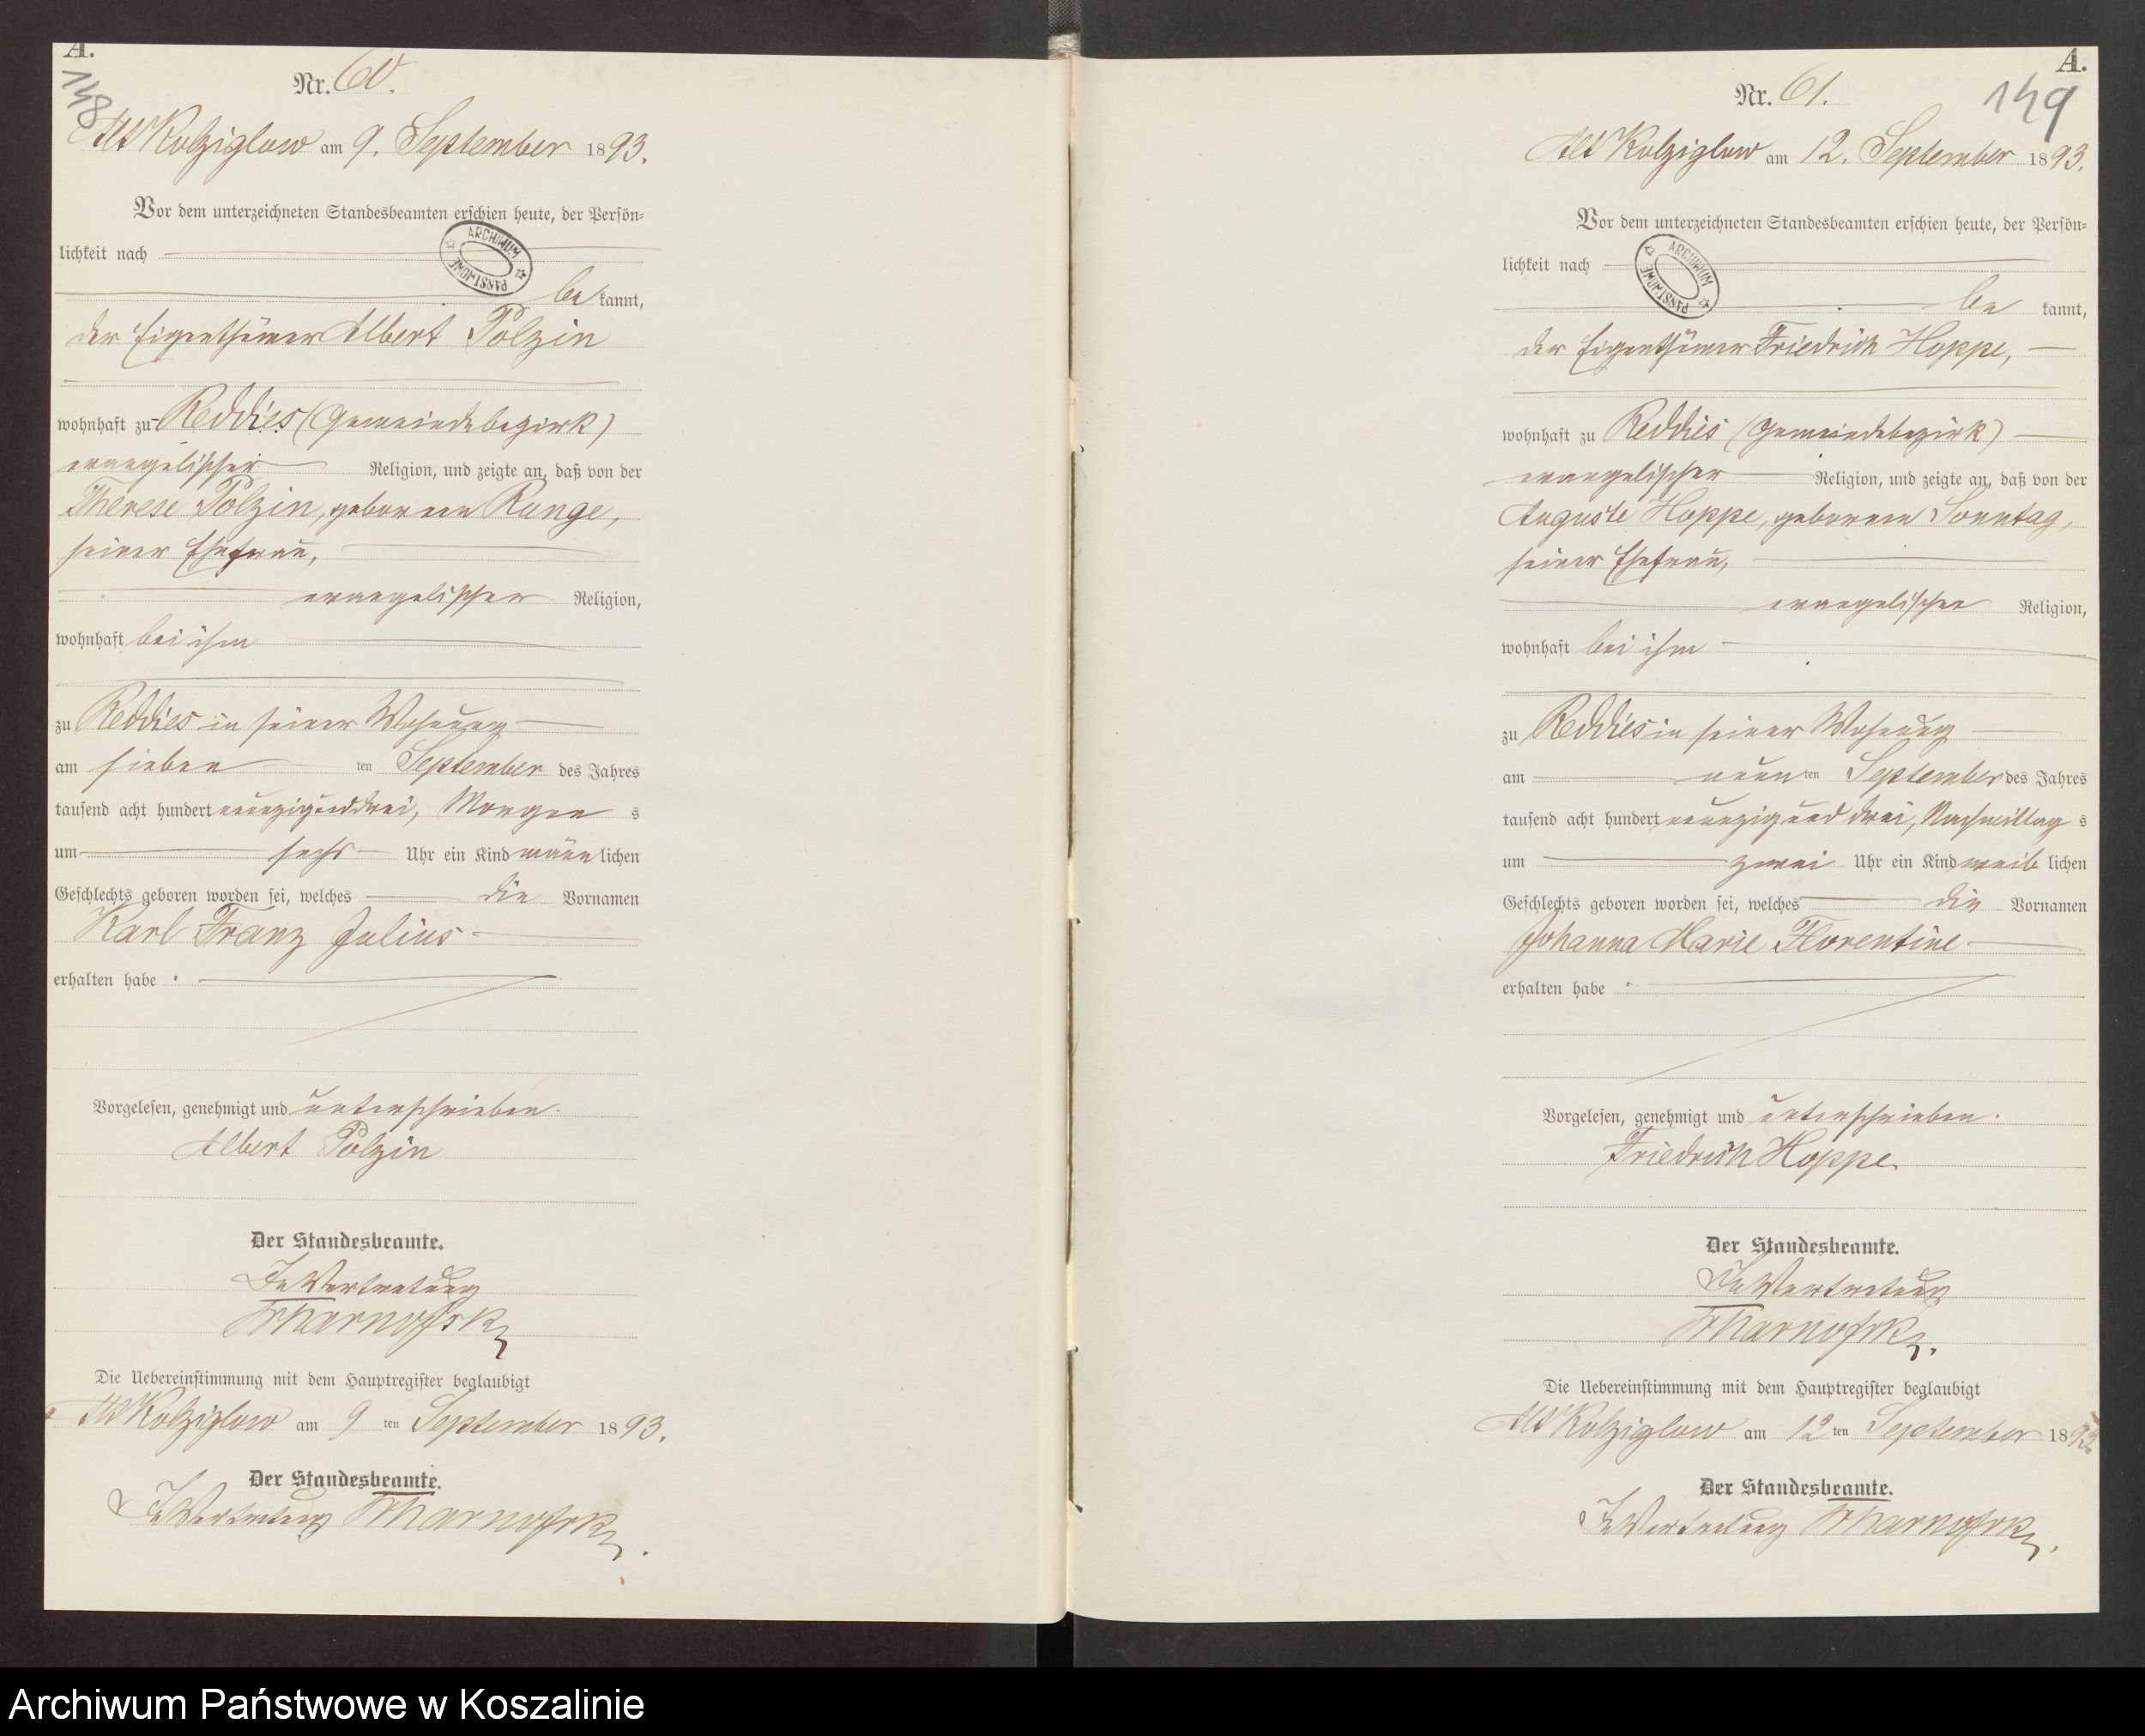 A.
148
Nr. 60.
Alt Kolziglow am 9. September 1893.
Vor dem unterzeichneten Standesbeamten erschien heute, der Persön-
lichkeit nach
ARCHIWUM PAŃSTWOWE
be kannt,
der Eigenthümer Albert Polzin
wohnhaft zu Reddies (Gemeindebezirk)
evangelischer Religion, und zeigte an, daß von der
Therese Polzin, geborenen Range,
seiner Ehefrau,
evangelischer Religion,
wohnhaft bei ihm
zu Reddies in seiner Wohnung
am sieben ten September des Jahres
tausend acht hundert neunzig und drei, Morgen s
um sechs Uhr ein Kind männ lichen
Geschlechts geboren worden sei, welches die Vornamen
Karl Franz Julius
erhalten habe.
Vorgelesen, genehmigt und unterschrieben.
Albert Polzin
Der Standesbeamte.
In Vertretung
Die Uebereinstimmung mit dem Hauptregister beglaubigt
Alt Kolziglow am 9 ten September 1893.
Der Standesbeamte.
In Vertretung
A.
149
Nr. 61.
Alt Kolziglow am 12. September 1893.
Vor dem unterzeichneten Standesbeamten erschien heute, der Persön-
lichkeit nach
ARCHIWUM PAŃSTWOWE
be kannt,
der Eigenthümer Friedrich Hoppe,
wohnhaft zu Reddies (Gemeindebezirk)
evangelischer Religion, und zeigte an, daß von der
Auguste Hoppe, geborenen Sonntag,
seiner Ehefrau,
evangelischer Religion,
wohnhaft bei ihm
zu Reddies in seiner Wohnung
am neun ten September des Jahres
tausend acht hundert neunzig und drei, Nachmittag s
um zwei Uhr ein Kind weib lichen
Geschlechts geboren worden sei, welches die Vornamen
Johanna Marie Florentine
erhalten habe.
Vorgelesen, genehmigt und unterschrieben.
Friedrich Hoppe
Der Standesbeamte.
In Vertretung
Die Uebereinstimmung mit dem Hauptregister beglaubigt
Alt Kolziglow am 12 ten September 1893.
Der Standesbeamte.
In Vertretung
Archiwum Państwowe w Koszalinie